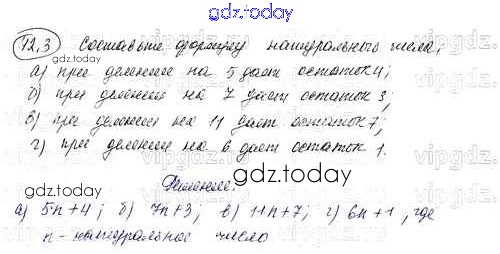 gdz.today
12.3 Составьте формулу натурального числа,
gdz.today
а) при делении на 5 даёт остаток 4;
б) при делении на 7 даёт остаток 3;
в) при делении на 11 даёт остаток 7;
г) при делении на 6 даёт остаток 1.
gdz.today
Решение.
а) 5·n+4; б) 7n+3; в) 11n+7; г) 6n+1, где
n - натуральное число
gdz.today